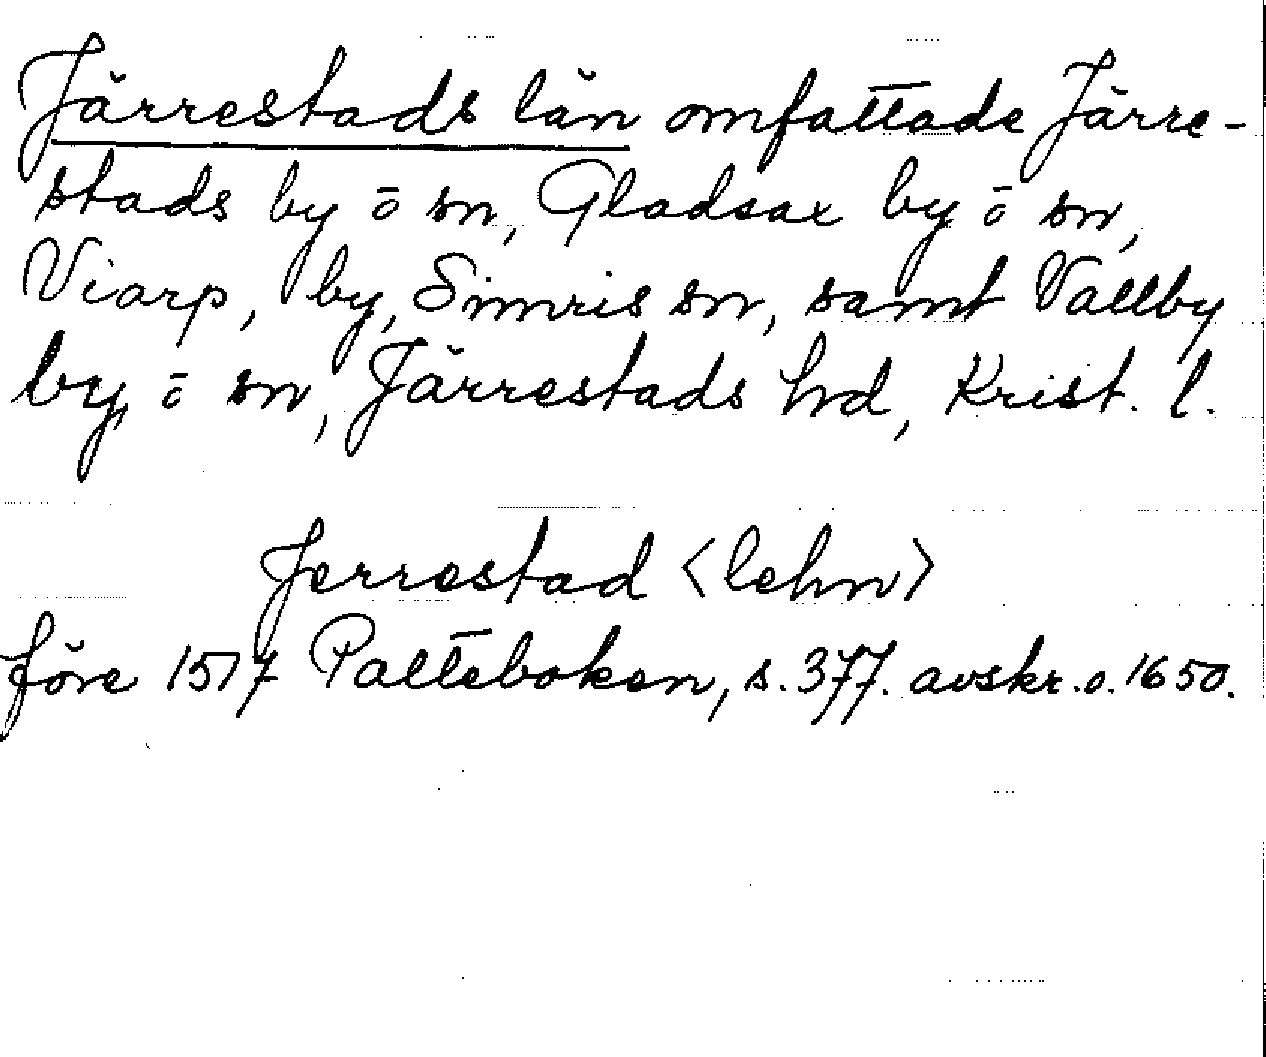 Järrestads län omfattade Järre-
stads by ō sn, Gladsax by ō sn,
Viarp, by, Simris sn, samt Vallby
by, ō sn, Järrestads hd, Krist. l.
Jerrestad <lehn>
före 1517 Palteboken, s. 377. avskr. o. 1650.